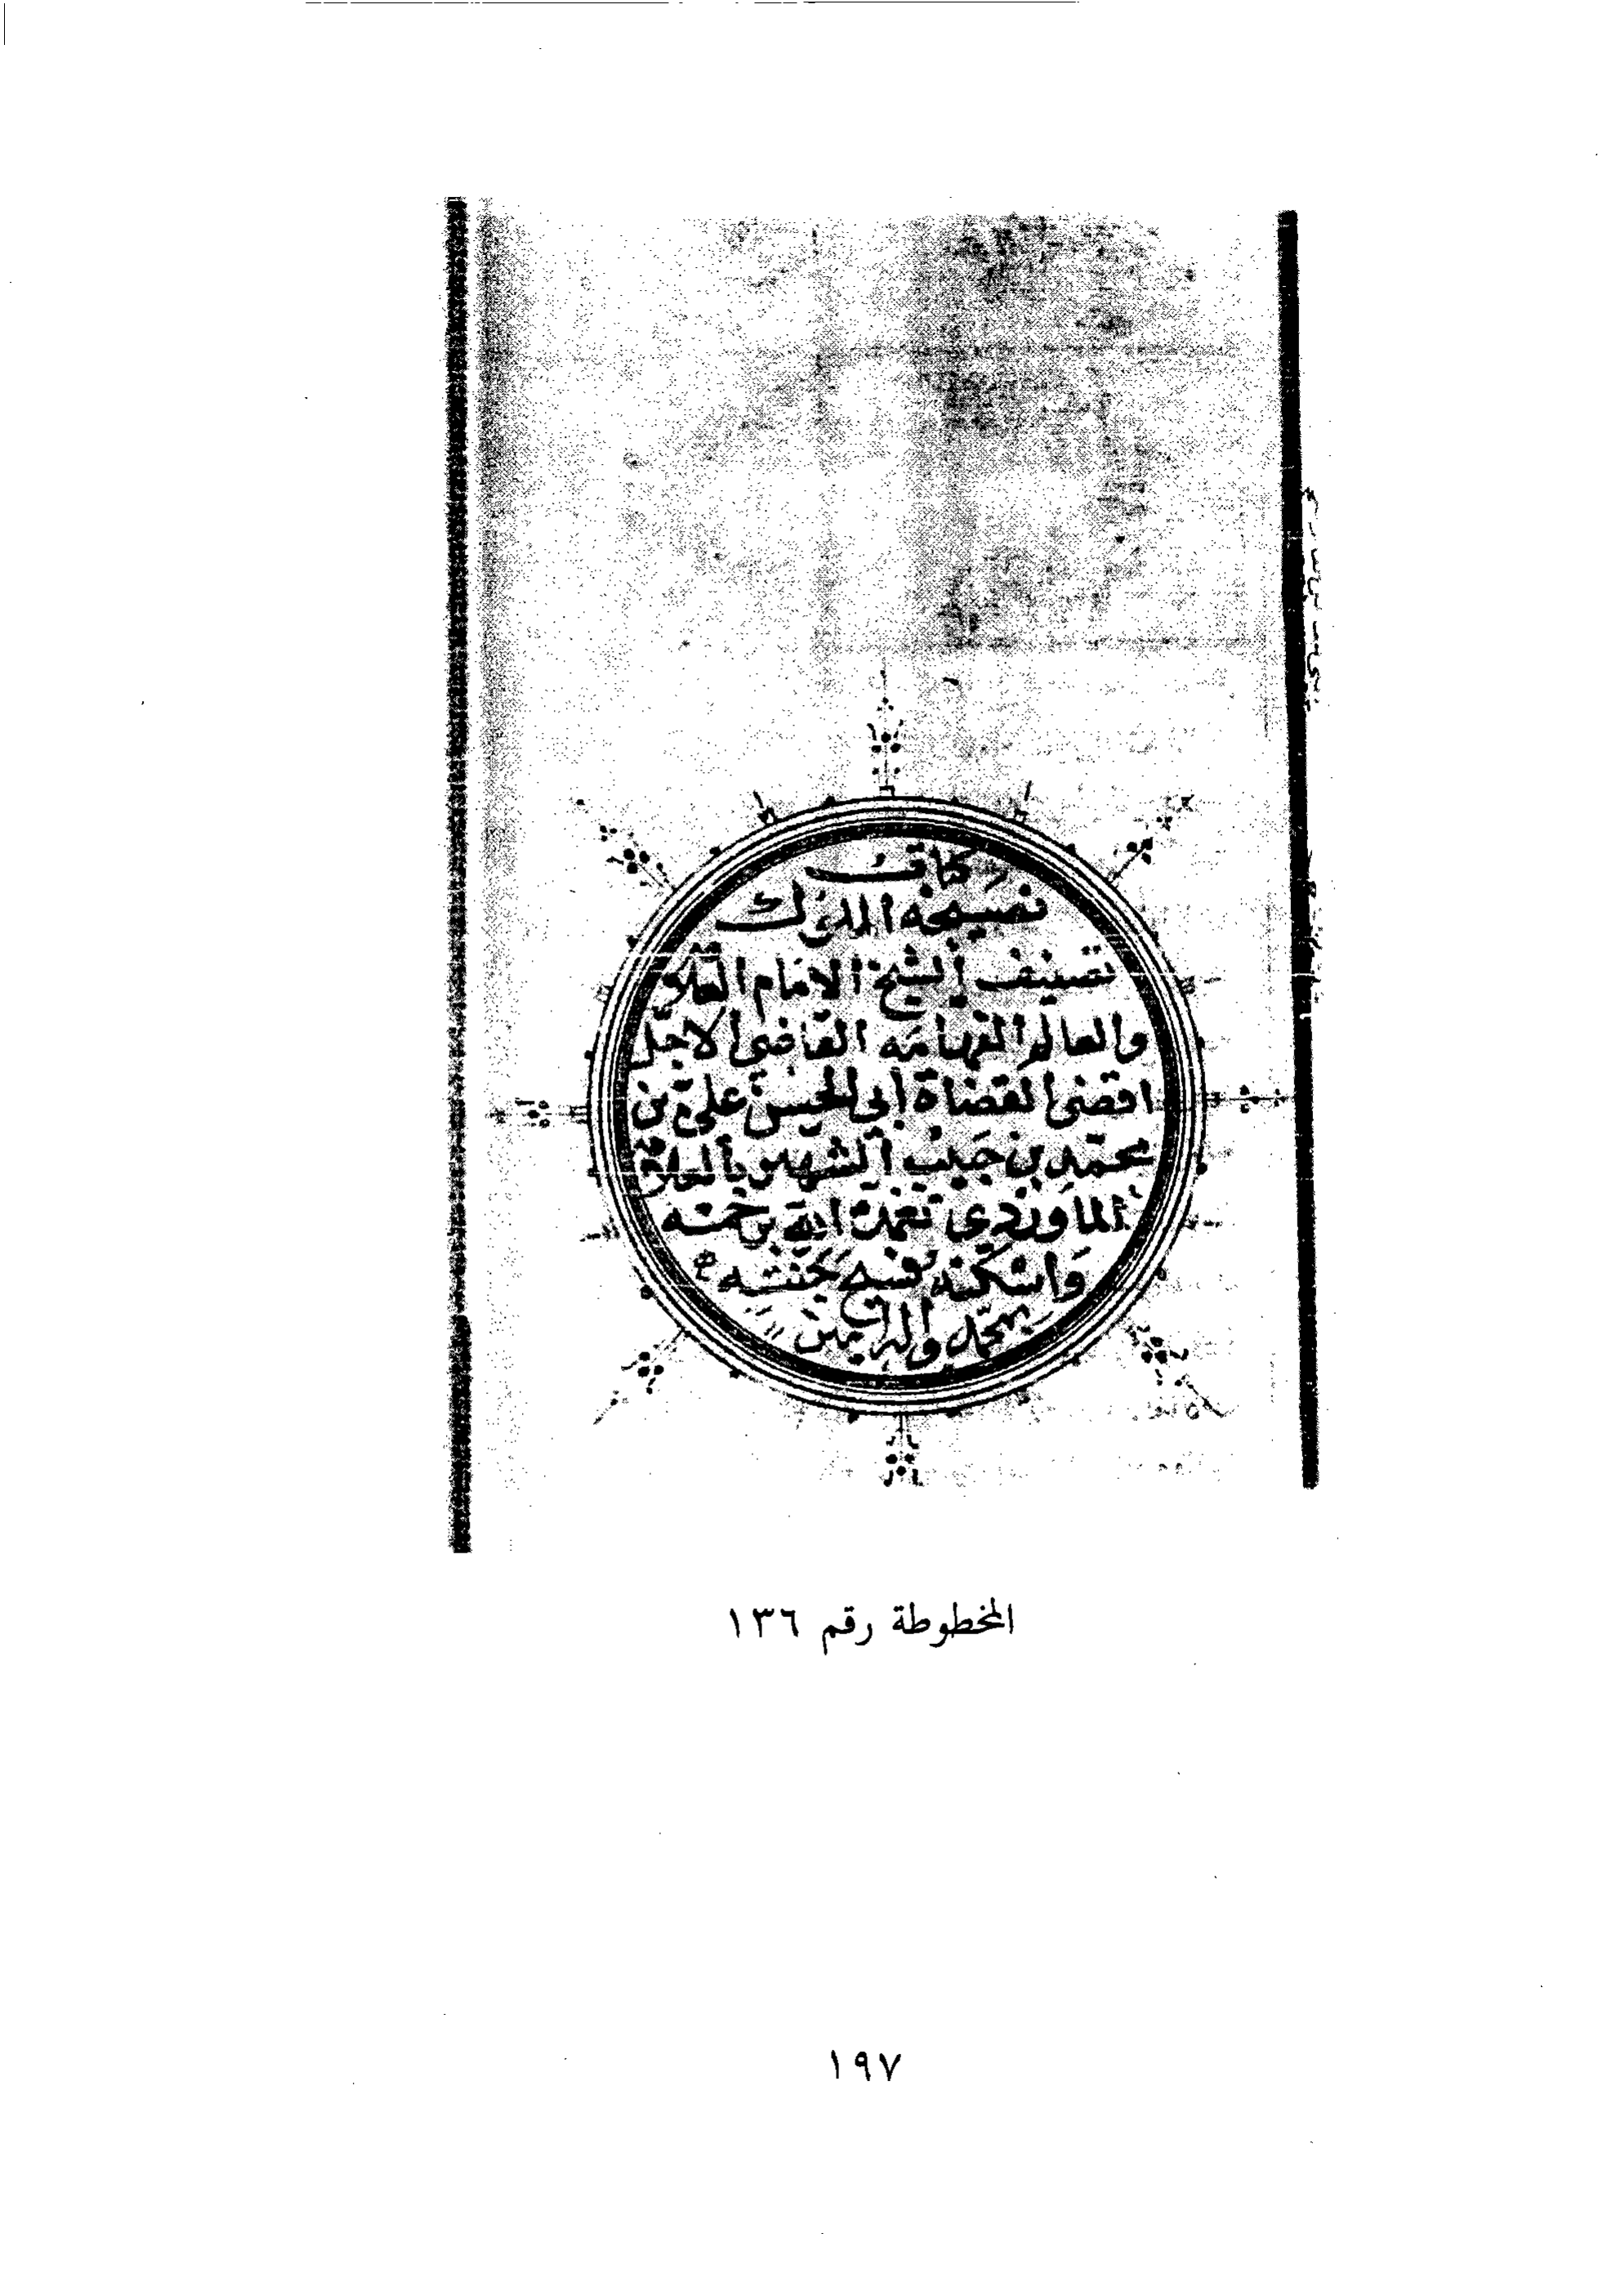 كتاب
نصيحة الملوك
تصنيف الشيخ الامام العلامة
والعالم الفهامه القاضي الاجل
اقضى القضاة أبي الحسن علي بن
محمد بن حبيب الشهير
الماوردي تغمده الله برحمته
واسكنه فسيح جنته
بمحمد واله امين
المخطوطة رقم ١٣٦
١٩٧